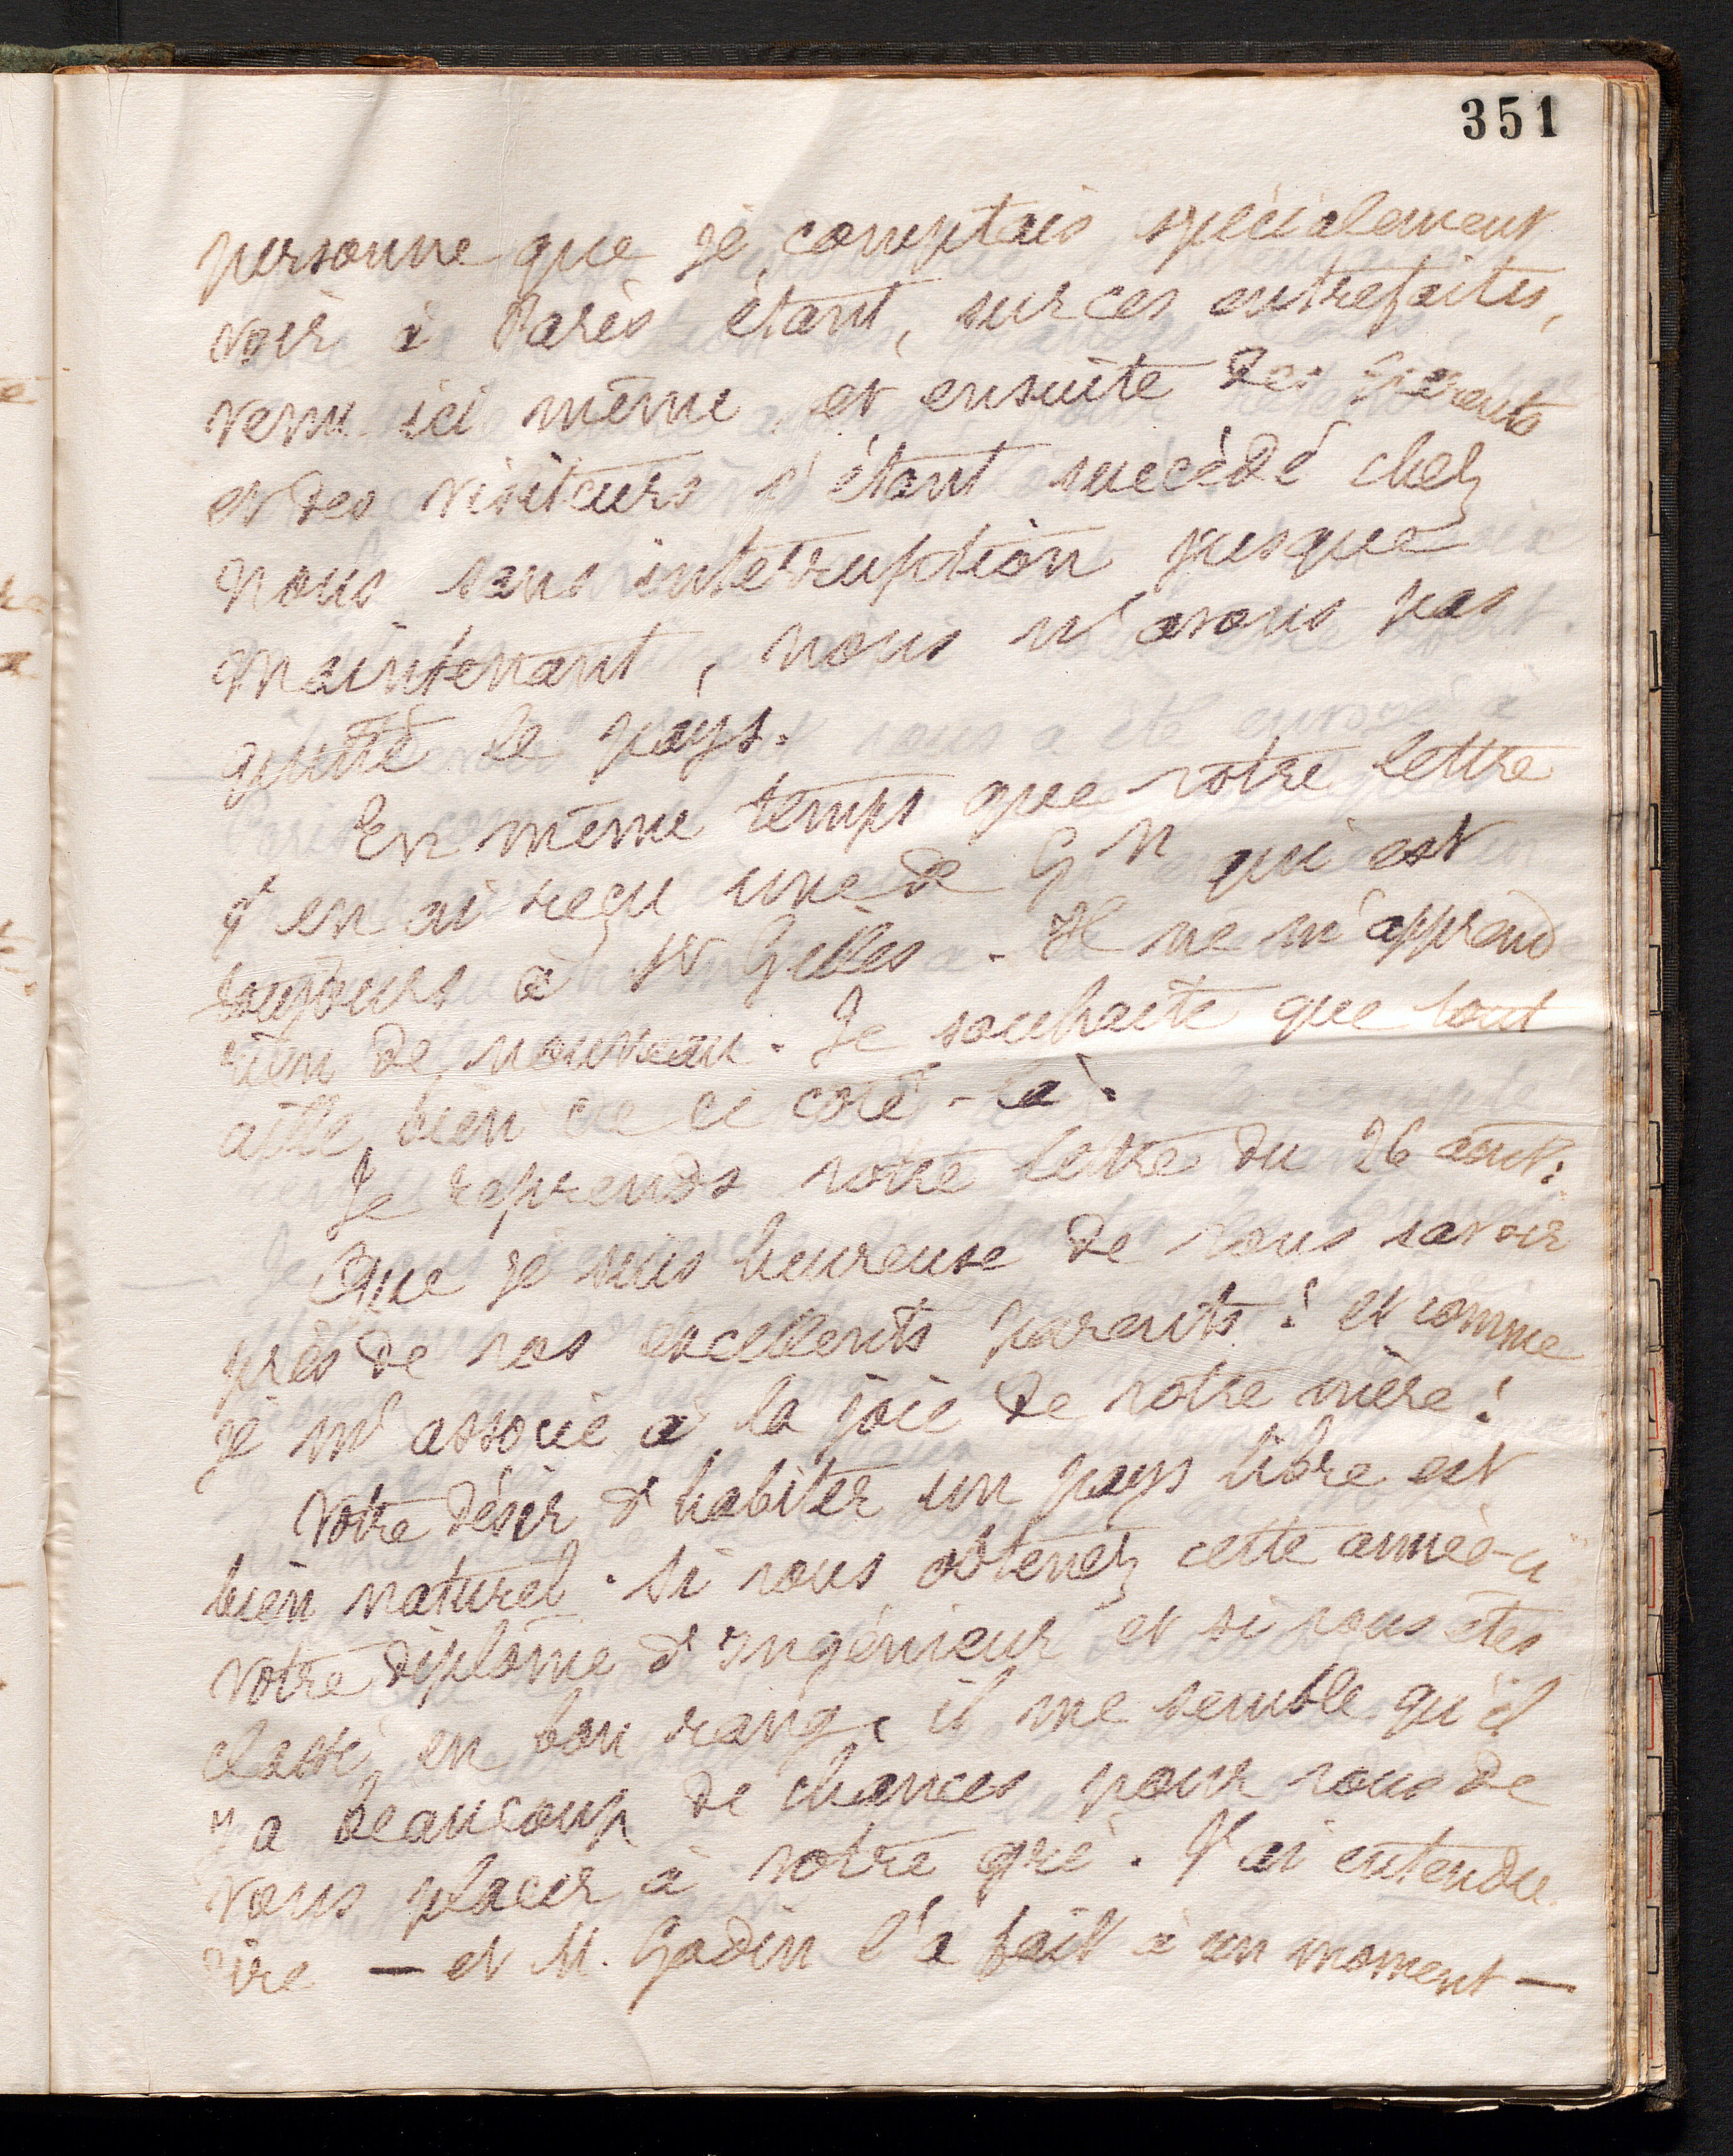 351
personne que je comptais spécialement
voir à Paris étant, sur ces entrefaites,
venu ici même et ensuite des parents
et des visiteurs s'étant succédé chez
nous sans interruption jusque
maintenant, nous n'avons pas
quitté le pays.
En même temps que votre lettre
j'en ai reçu une de Gn qui est
toujours à St Gilles. Il ne m'apprend
rien de nouveau. Je souhaite que tout
aille bien de ce côté-là.
Je reprends votre lettre du 26 août:
Que je suis heureuse de vous savoir
près de vos excellents parents! et comme
je m'associe à la joie de votre mère!
Votre désir d'habiter un pays libre est
bien naturel. Si vous obtenez cette année-ci
votre diplôme d'Ingénieur et si vous êtes
classé en bon rang, il me semble qu'il
y a beaucoup de chances pour vous de
vous placer à votre gré. J'ai entendu
dire — et M. Godin l'a fait à un moment —